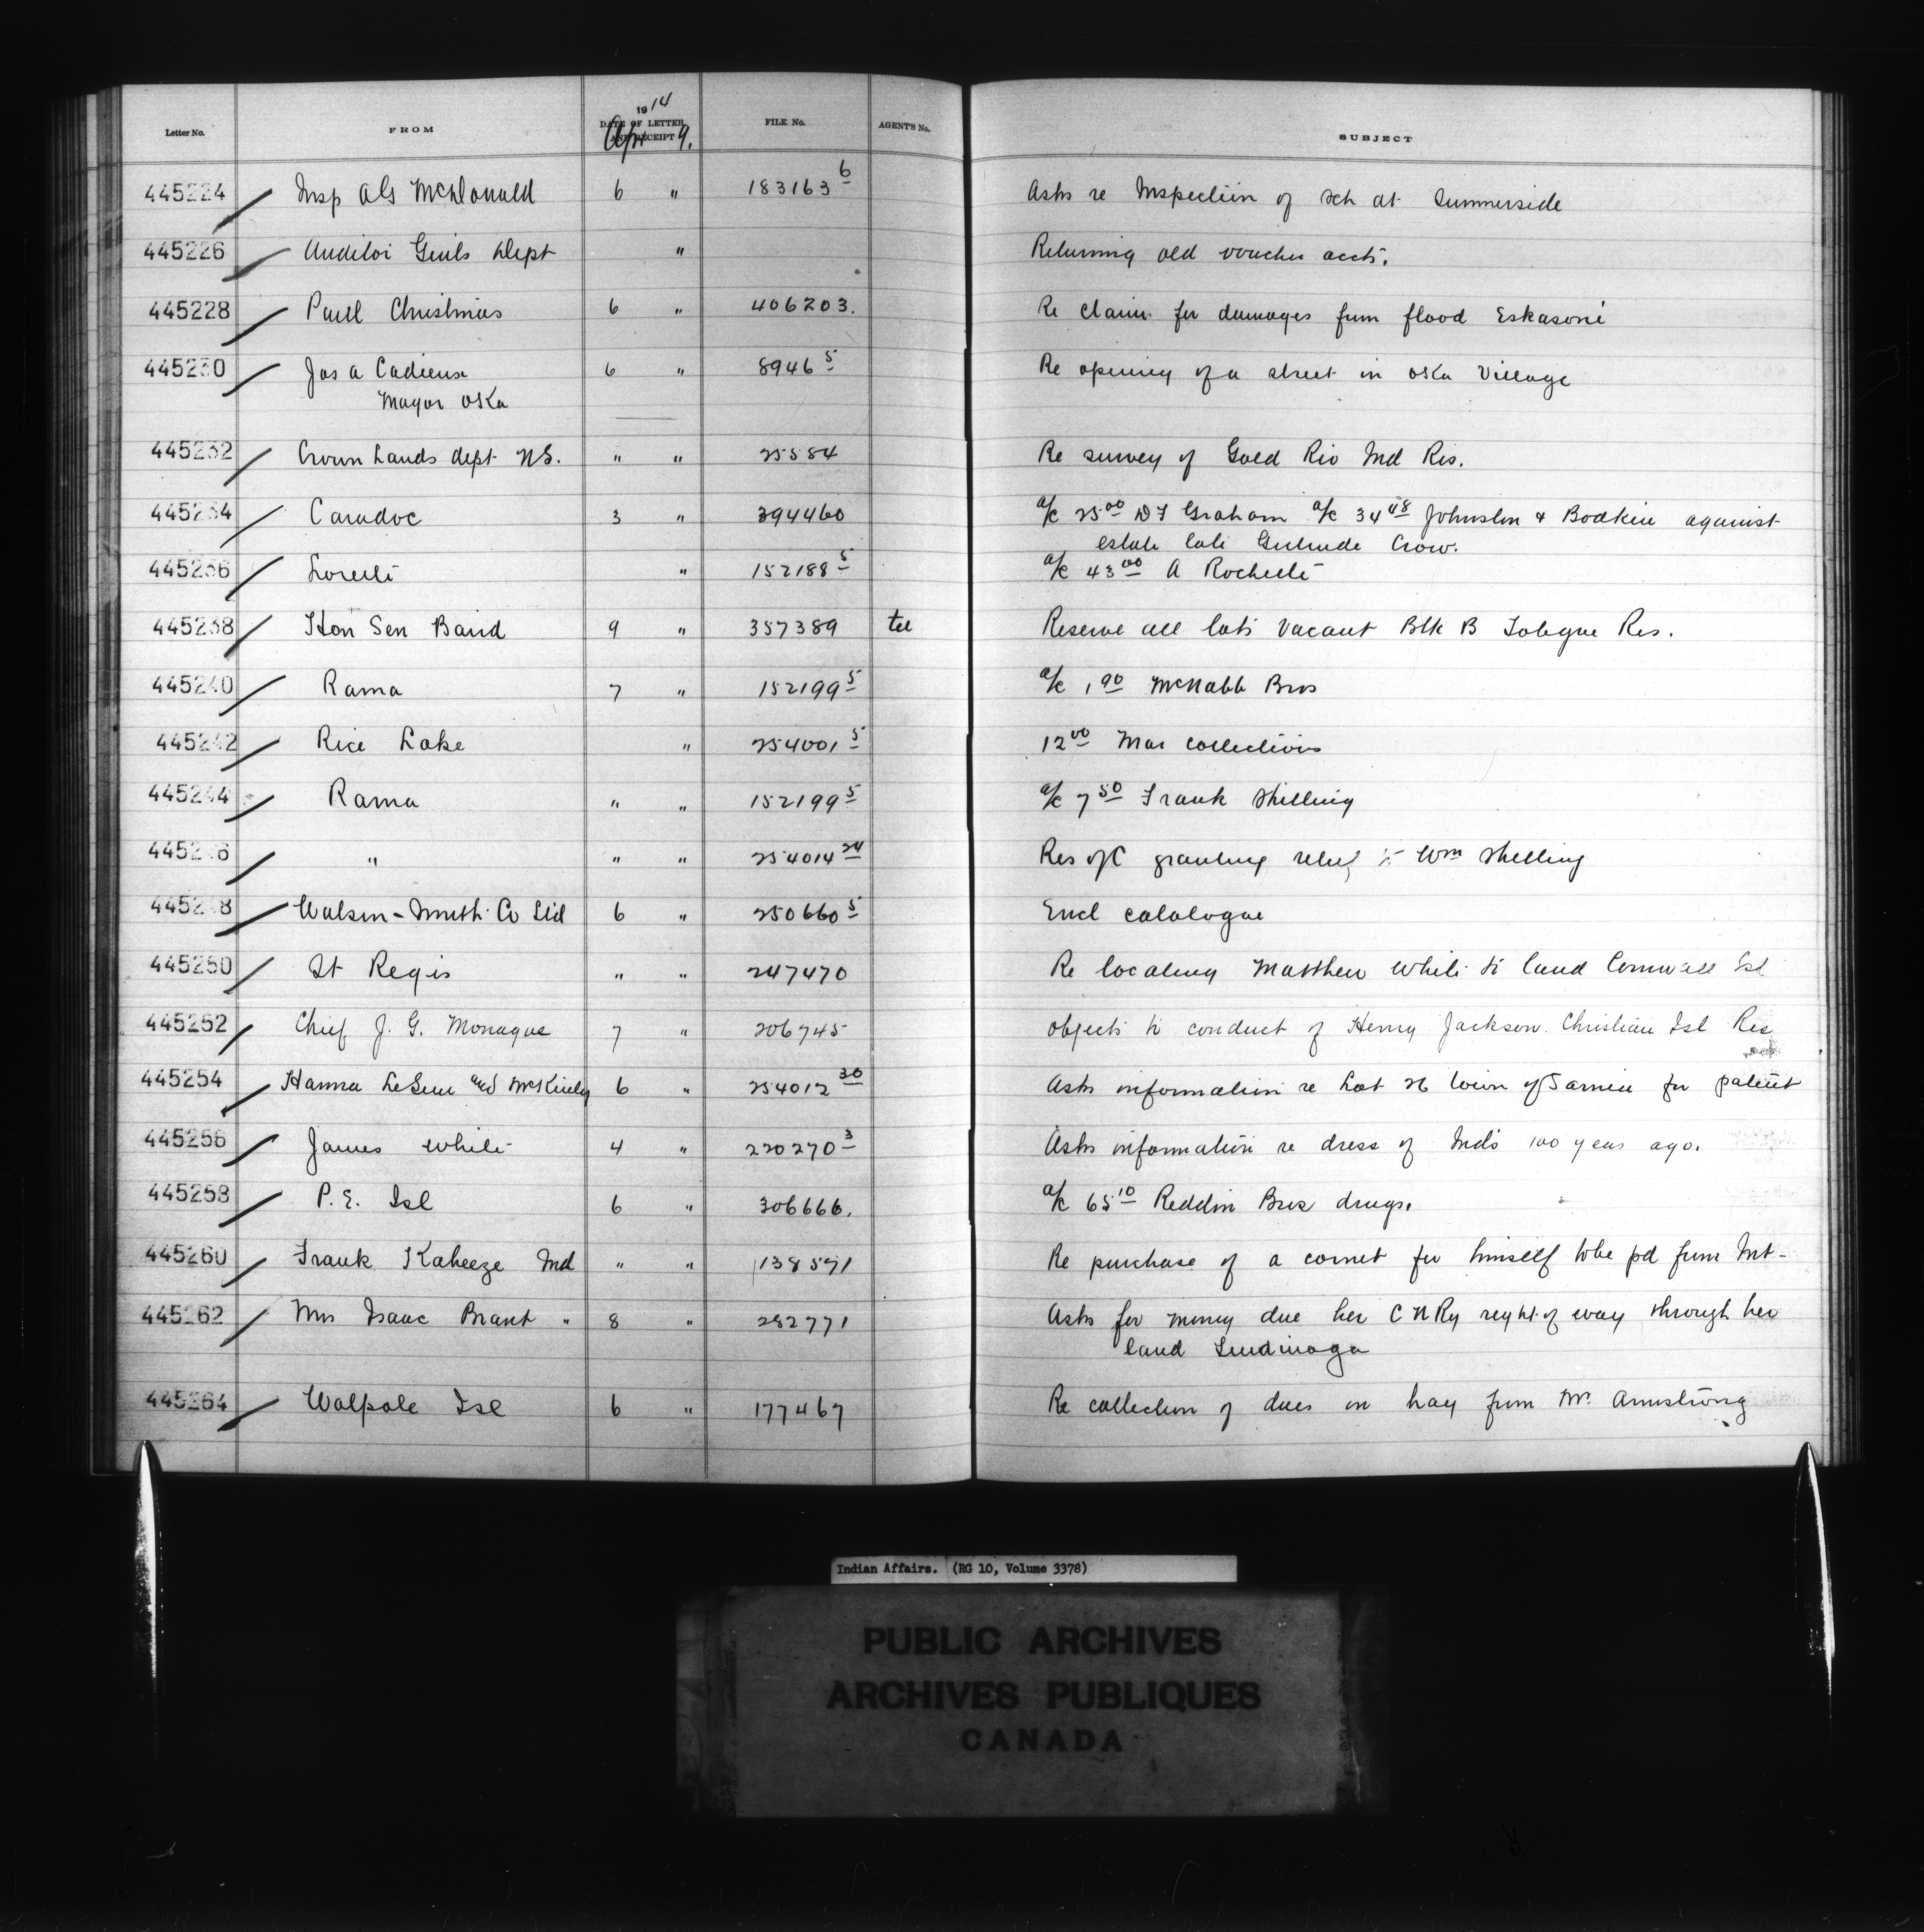 Letter No. FROM 1914 DATE OF LETTER AND RECEIPT Apr 9. FILE No. AGENT'S No. SUBJECT
445224 Insp A G McDonald 6 " 183163 6 Asks re Inspection of sch at Summerside
445226 Auditor Genls Dept " Returning old voucher accts.
445228 Paul Christmas 6 " 406203. Re claim for damages from flood Eskasoni
445230 Jos A Cadieux 6 " 8946 5 Re opening of a street in Oka Village
Mayor Oka
445232 Crown Lands dept NS. " " 25584 Re survey of Gold Riv Ind Res.
445234 Caradoc 3 " 394460 a/c 25 00 D F Graham a/c 34 48 Johnston & Bodkin against
estate late Gertrude Crow.
445236 Lorette " 152188 5 a/c 43 00 A Rochette
445238 Hon Sen Baird 9 " 357389 tel Reserve all lots vacant Blk B Tobique Res.
445240 Rama 7 " 152199 5 a/c 1 90 McNabb Bros
445242 Rice Lake " 254001 5 12 00 Mar collections
445244 Rama " " 152199 5 a/c 7 50 Frank Shilling
445246 " " " 254014 24 Res of C granting relief to Wm Shilling
445248 Watson-Smith Co Ltd 6 " 250660 5 Encl catalogue
445250 St Regis " " 247470 Re locating Matthew White to land Cornwall Isl
445252 Chief J. G. Monague 7 " 206745 objects to conduct of Henry Jackson. Christian Isl Res
445254 Hanna LeSueur and McKinley 6 " 254012 30 Asks information re Lot 26 town of Sarnia for patent
445256 James White 4 " 220270 3 Asks information re dress of Inds 100 years ago.
445258 P.E. Isl 6 " 306666. a/c 65 10 Reddin Bros drugs.
445260 Frank Kabeeze Ind " " 138591 Re purchase of a cornet for himself to be pd from Int-
445262 Mrs Isaac Brant " 8 " 282771 Asks for money due her C N Ry right of way through her
land Tyendinaga
445264 Walpole Isl 6 " 177467 Re collection of dues on hay from Mr. Armstrong
Indian Affairs. (RG 10, Volume 3378)
PUBLIC ARCHIVES
ARCHIVES PUBLIQUES
CANADA